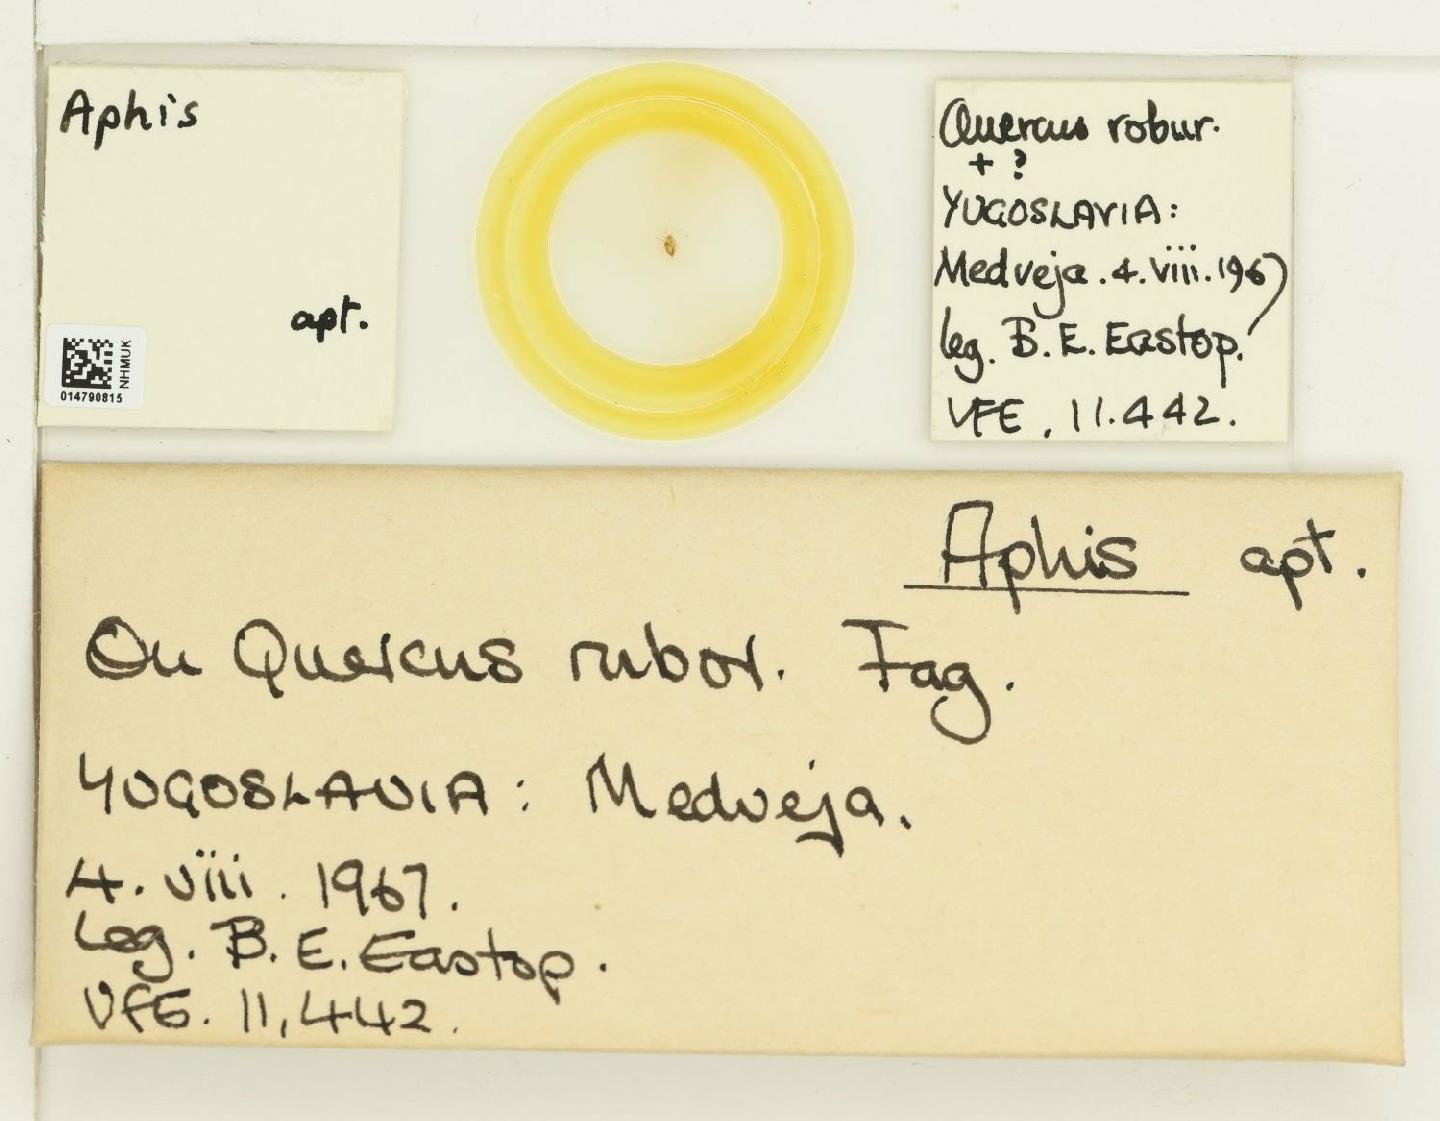 Aphis
apt.
NHMUK
014790815
Quercus robur.
+ ?
YUGOSLAVIA:
Medveja. 4. viii. 1967
leg. B. E. Eastop.
VFE. 11.442.
Aphis apt.
On Quercus rubor. Fag.
YUGOSLAVIA: Medveja.
4. viii. 1967.
Leg. B. E. Eastop.
VFE. 11,442.